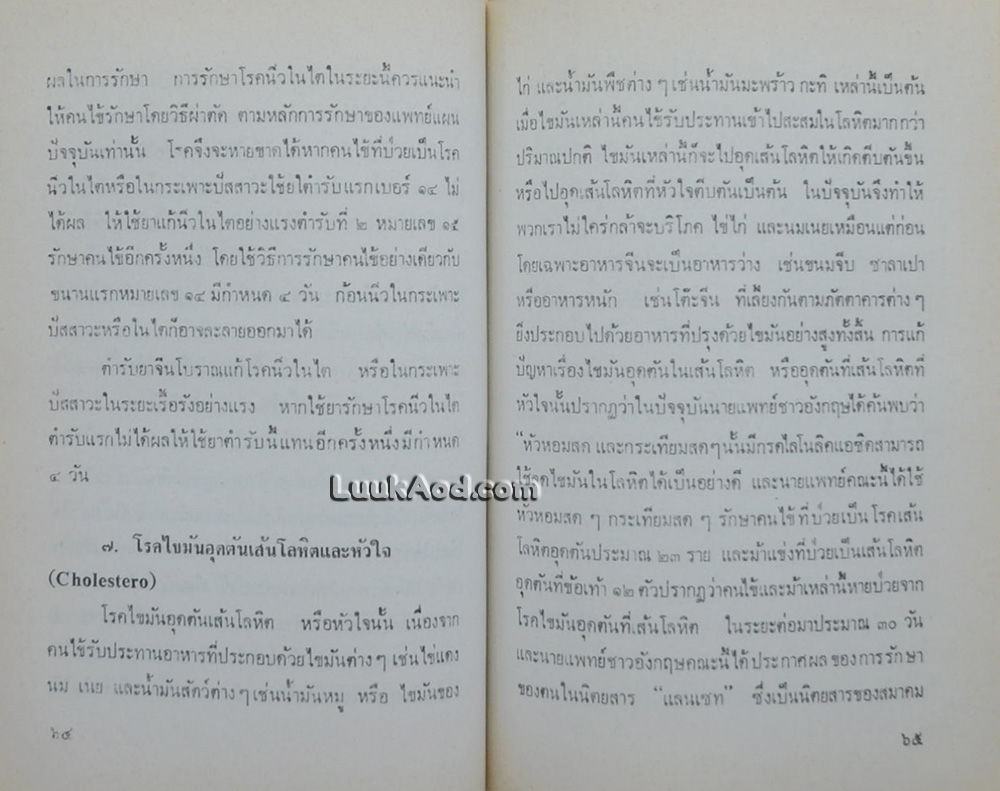 ผลในการรักษา การรักษาโรคนิ่วในไตในระยะนี้ควรแนะนำ
ให้คนไข้รักษาโดยวิธีผ่าตัด ตามหลักการรักษาของแพทย์แผน
ปัจจุบันเท่านั้น โรคจึงจะหายขาดได้หากคนไข้ที่ป่วยเป็นโรค
นิ่วในไตหรือในกระเพาะปัสสาวะใช้ยาตำรับแรกเบอร์ ๑๔ ไม่
ได้ผล ให้ใช้ยาแก้นิ่วในไตอย่างแรงตำรับที่ ๒ หมายเลข ๑๕
รักษาคนไข้อีกครั้งหนึ่ง โดยใช้วิธีการรักษาคนไข้อย่างเดียวกับ
ขนานแรกหมายเลข ๑๔ มีกำหนด ๔ วัน ก้อนนิ่วในกระเพาะ
ปัสสาวะหรือในไตก็อาจละลายออกมาได้
ตำรับยาจีนโบราณแก้โรคนิ่วในไต หรือในกระเพาะ
ปัสสาวะในระยะเรื้อรังอย่างแรง หากใช้ยารักษาโรคนิ่วในไต
ตำรับแรกไม่ได้ผลให้ใช้ยาตำรับนี้แทนอีกครั้งหนึ่งมีกำหนด
๔ วัน
LuukAod.com
๗. โรคไขมันอุดตันเส้นโลหิตและหัวใจ
(Cholestero)
โรคไขมันอุดตันเส้นโลหิต หรือหัวใจนั้น เนื่องจาก
คนไข้รับประทานอาหารที่ประกอบด้วยไขมันต่างๆ เช่นไข่แดง
นม เนย และน้ำมันสัตว์ต่างๆเช่นน้ำมันหมู หรือ ไขมันของ
๖๔
ไก่ และน้ำมันพืชต่าง ๆ เช่นน้ำมันมะพร้าว กะทิ เหล่านี้เป็นต้น
เมื่อไขมันเหล่านี้คนไข้รับประทานเข้าไปสะสมในโลหิตมากกว่า
ปริมาณปกติ ไขมันเหล่านี้ก็จะไปอุดเส้นโลหิตให้เกิดตีบตันขึ้น
หรือไปอุดเส้นโลหิตที่หัวใจตีบตันเป็นต้น ในปัจจุบันจึงทำให้
พวกเราไม่ใคร่กล้าจะบริโภค ไข่ไก่ และนมเนยเหมือนแต่ก่อน
โดยเฉพาะอาหารจีนจะเป็นอาหารว่าง เช่นขนมจีบ ซาลาเปา
หรืออาหารหนัก เช่นโต๊ะจีน ที่เลี้ยงกันตามภัตตาคารต่างๆ
ยิ่งประกอบไปด้วยอาหารที่ปรุงด้วยไขมันอย่างสูงทั้งสิ้น การแก้
ปัญหาเรื่องไขมันอุดตันในเส้นโลหิต หรืออุดตันที่เส้นโลหิตที่
หัวใจนั้นปรากฏว่าในปัจจุบันนายแพทย์ชาวอังกฤษได้ค้นพบว่า
"หัวหอมสด และกระเทียมสดๆนั้นมีกรดไลโนลิคแอซิดสามารถ
ใช้ลดไขมันในโลหิตได้เป็นอย่างดี และนายแพทย์คณะนี้ได้ใช้
หัวหอมสด ๆ กระเทียมสด ๆ รักษาคนไข้ที่ป่วยเป็นโรคเส้น
โลหิตอุดตันประมาณ ๒๓ ราย และม้าแข่งที่ป่วยเป็นเส้นโลหิต
อุดตันที่ข้อเท้า ๑๒ ตัวปรากฏว่าคนไข้และม้าเหล่านี้หายป่วยจาก
โรคไขมันอุดตันที่เส้นโลหิต ในระยะต่อมาประมาณ ๓๐ วัน
และนายแพทย์ชาวอังกฤษคณะนี้ได้ประกาศผลของการรักษา
ของตนในนิตยสาร "แลนเซท" ซึ่งเป็นนิตยสารของสมาคม
๖๕